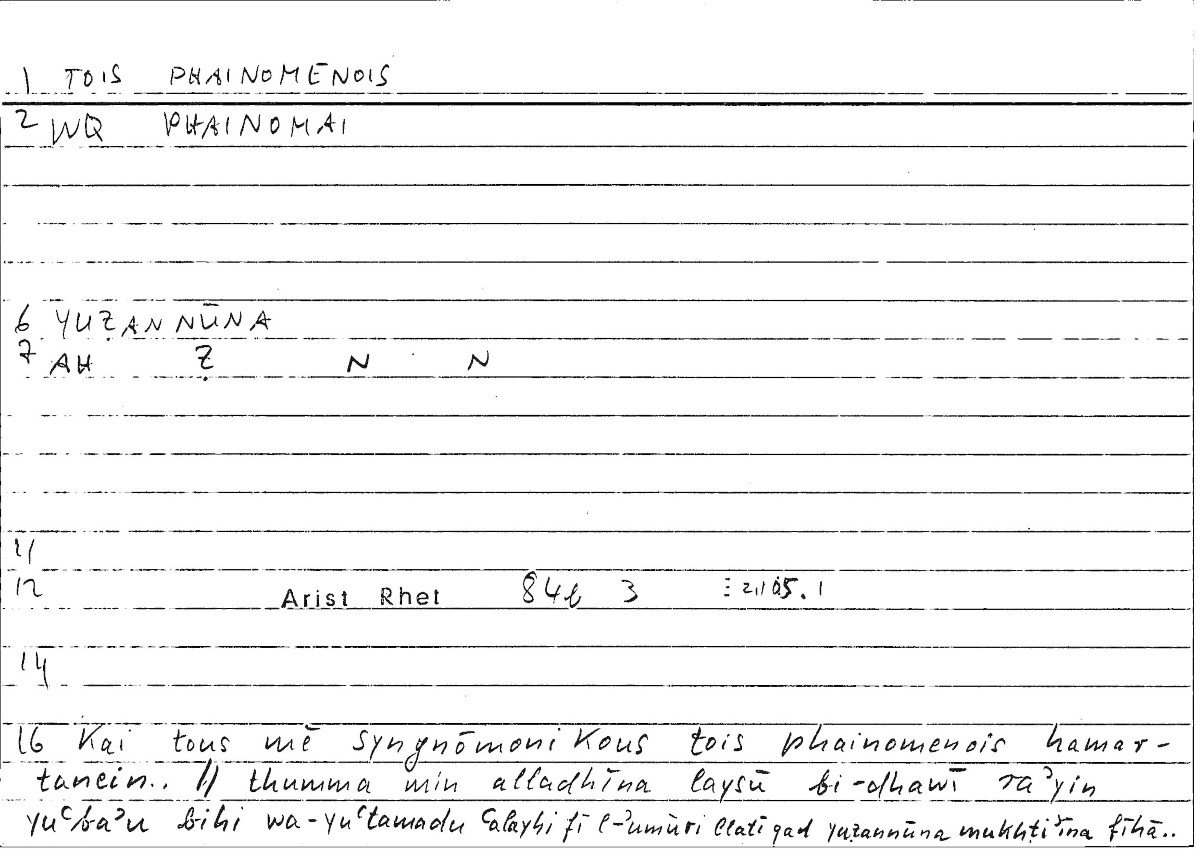 1 TOIS PHAINOMĒNOIS
2 WQ PHAINOMAI
6 YUẒANNŪNA
7 AH Ẓ N N
11
12 Arist Rhet 84b 3 ⋮ 2,105.1
14
16 Kai tous mē syngnōmonikous tois phainomenois hamar-
tanein.. // thumma min alladhīna laysū bi-dhawī raʾyin
yuʿbaʾu bihi wa-yuʿtamadu ʿalayhi fī l-ʾumūri llatī qad yuẓannūna mukhṭiʾīna fīhā..